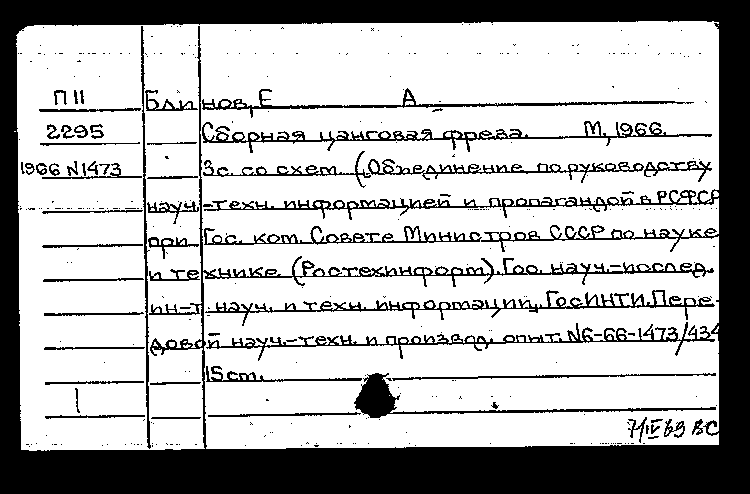 П 11 Блинов, Е А
2295 Сборная цанговая фреза. М, 1966.
1966 N1473 3с. со схем. (Объединение по руководству
науч.-техн. информацией и пропагандой в РСФСР
при Гос. ком. Совета Министров СССР по науке
и технике (Ростехинформ). Гос. науч.-исслед.
ин-т науч. и техн. информации, ГосИНТИ. Пере-
довой науч.-техн. и производ. опыт. N6-66-1473/434
15 cm.
7/IV 69 ВС